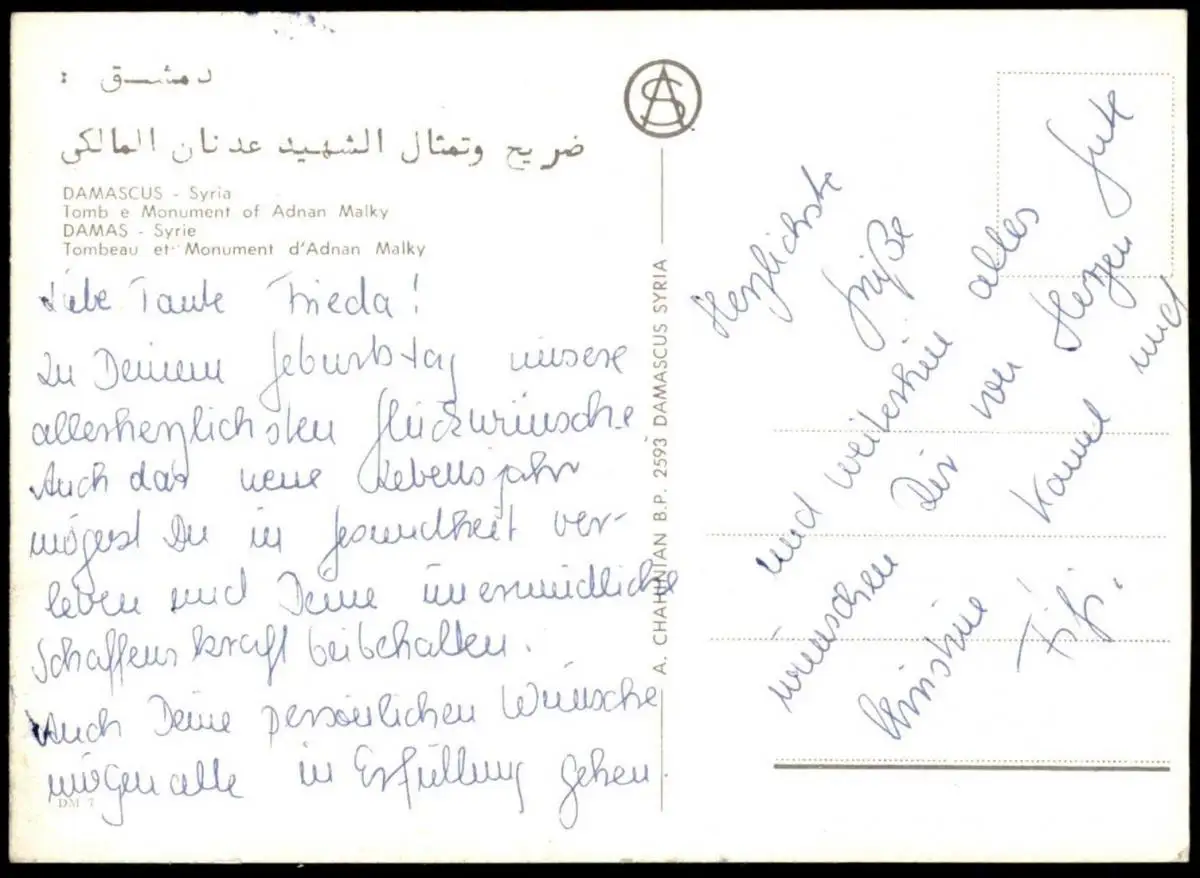 دمشق :
ضريح وتمثال الشهيد عدنان المالكي
DAMASCUS - Syria
Tomb e Monument of Adnan Malky
DAMAS - Syrie
Tombeau et Monument d'Adnan Malky
Liebe Tante Frieda!
Zu Deinem Geburtstag unsere
allerherzlichsten Glückwünsche
Auch das neue Lebensjahr
mögest Du in Gesundheit ver-
leben und Deine unermüdliche
Schaffenskraft beibehalten.
Auch Deine persönlichen Wünsche
mögen alle in Erfüllung gehen.
DM 7
AS
A. CHAHINIAN B.P. 2593 DAMASCUS SYRIA
Herzlichste
Grüße
und weiterhin alles Gute
wünschen Dir von Herzen
Christine Kamel und
Fifi.